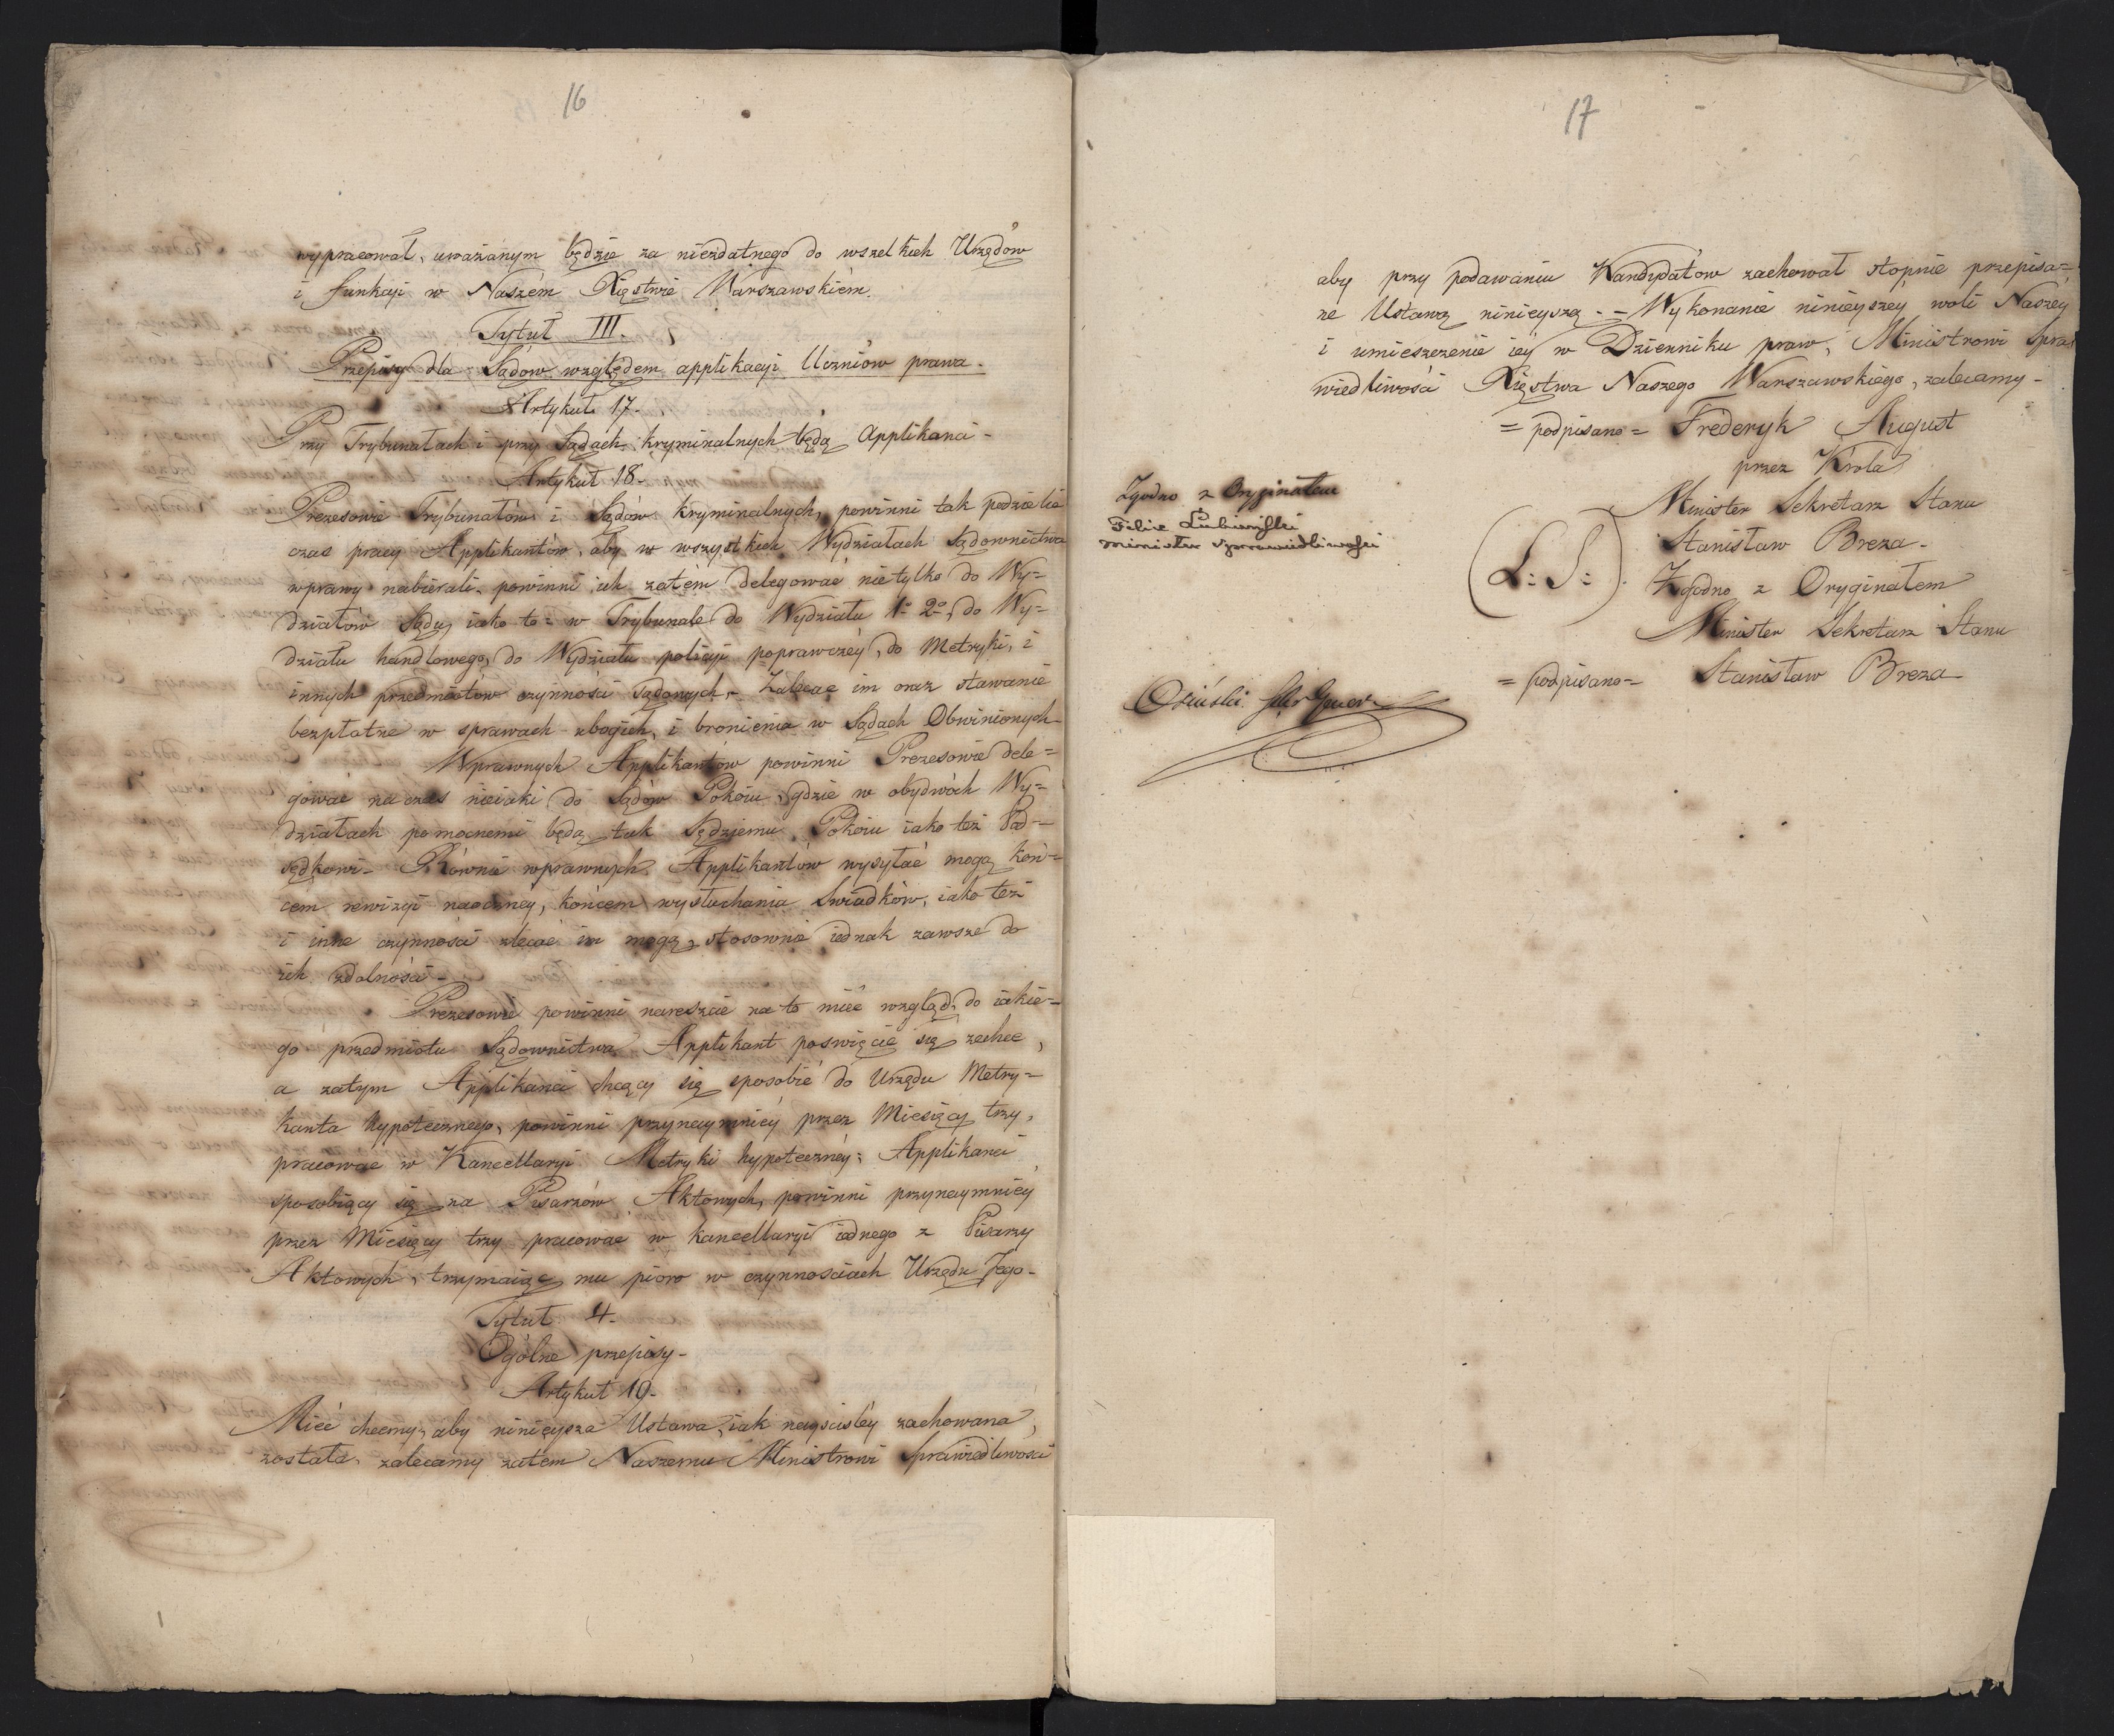 16
wypracował, uważanym będzie za niezdatnego do wszelkich Urzędów
i funkcji w Naszém Xięstwie Warszawskiém.
Tytuł III.
Przepisy dla Sądów względem applikacji Uczniów prawa.
Artykuł 17.
Przy Trybunałach i przy Sądach kryminalnych będą Applikanci -
Artykuł 18.
Prezesowie Trybunałów i Sądów kryminalnych, powinni tak podzielić
czas pracy Applikantów, aby w wszystkich Wydziałach Sądownictwa
wprawy nabierali, powinni ich zatém delegować nietylko do Wy=
działów Sądu, iako to: w Trybunale do Wydziału 1o 2o, do Wy=
działu handlowego, do Wydziału policyi poprawczéy, do Metryki, i
innych przedmiotów czynności Sądowych, - Zalecać im oraz stawanie
bezpłatne w sprawach ubogich, i bronienia w Sądach Obwinionych
Wprawnych Applikantów powinni Prezesowie dele=
gować na czas nieiaki do Sądów Pokoiu, gdzie w obydwóch Wy=
działach pomocnemi będą tak Sędziemu Pokoiu iako też Pod=
sędkowi - Równie wprawnych Applikantów wysyłać mogą koń=
cem rewizyi naoczney, końcem wysłuchania Swiadków, iako też
i inne czynności zlecać im mogą, stosownie iednak zawsze do
ich zdolności -
Prezesowie powinni nareszcie na to mieć wzgląd, do iakie=
go przedmiotu Sądownictwa Applikant poswięcić się zechce,
a zatym Applikanci chcący się sposobić do Urzędu Metry=
kanta hypotecznego, powinni przynaymniéy przez Miesięcy trzy,
pracować w Kancellaryi Metryki hypotecznéy; Applikanci
sposobiący się na Pisarzów Aktowych, powinni przynaymniéy
przez Miesięcy trzy pracować w kancellaryi iednego z Pisarzy
Aktowych, trzymaiąc mu pióro w czynnosciach Urzędu Jego -
Tytuł 4.
Ogólne przepisy -
Artykuł 19.
Mieć chcemy, aby ninieysza Ustawa, iak nayscisléy zachowana,
została, zalecamy zatem Naszemu Ministrowi Sprawiedliwości
17
aby przy podawaniu Kandydatów zachował stopnie przepisa=
ne Ustawą ninieyszą. - Wykonanie ninieyszéy woli Naszéy
i umieszczenie iéy w Dzienniku praw, Ministrowi Spra
wiedliwości Xięstwa Naszego Warszawskiego, zalecamy -
= podpisano = Frederyk August
przez Króla
Minister Sekretarz Stanu
Stanisław Breza -
(L: S:)
Zgodno z Oryginałem
Minister Sekretarz Stanu
= podpisano = Stanisław Breza
Zgodno z Oryginałem
Felix Lubieński
Minister Sprawiedliwości
Osiński